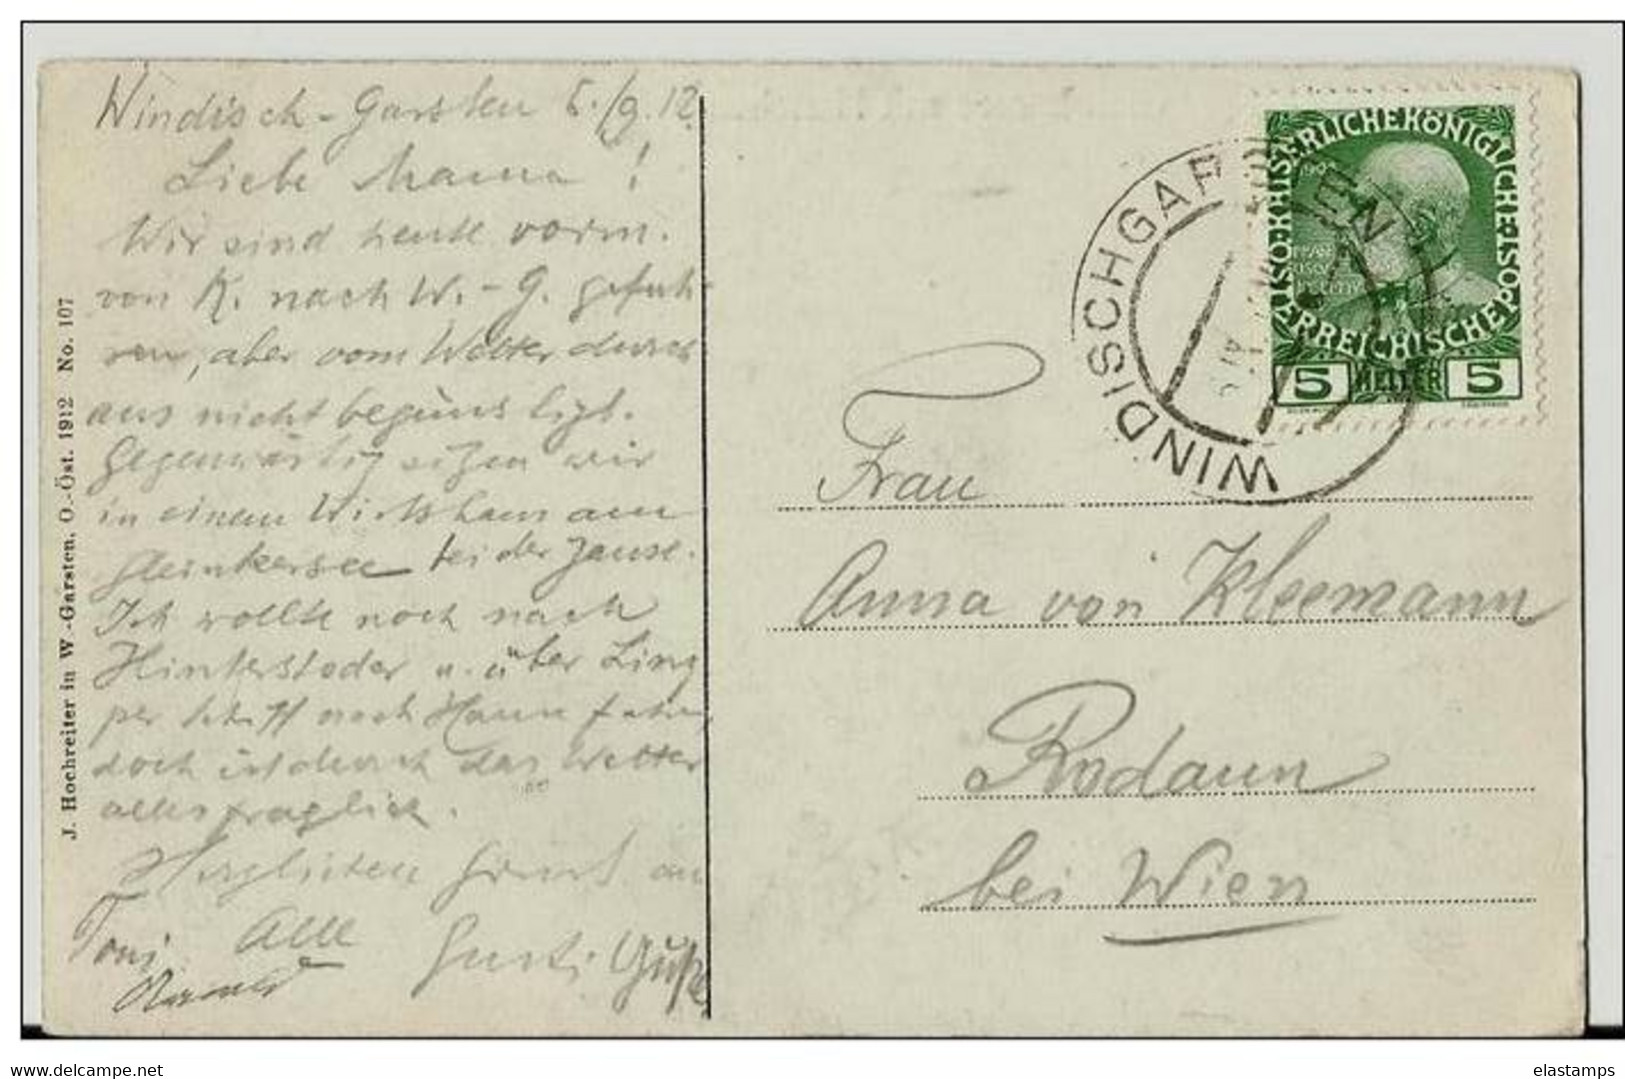 Windisch-Garsten 5./9.12
Liebe Mama!
Wir sind heute vorm.
von K. nach W.-G. gefah-
ren, aber vom Wetter durch-
aus nicht begünstigt.
Gegenwärtig sitzen wir
in einem Wirtshaus am
Gleinkersee bei der Jause.
Ich wollte noch nach
Hinterstoder u. über Linz
per Schiff nach Hause fahren,
doch ist durch das Wetter
alles fraglich.
Herzlichen Gruß an
Alle
Toni
Gusti
J. Hochreiter in W.-Garsten, O.-Öst. 1912 No. 107
KAISERLICHE KÖNIGLICHE ÖSTERREICHISCHE POST
5 HELLER 5
WINDISCHGARSTEN
Frau
Anna von Kleemann
Rodaun
bei Wien
elastamps